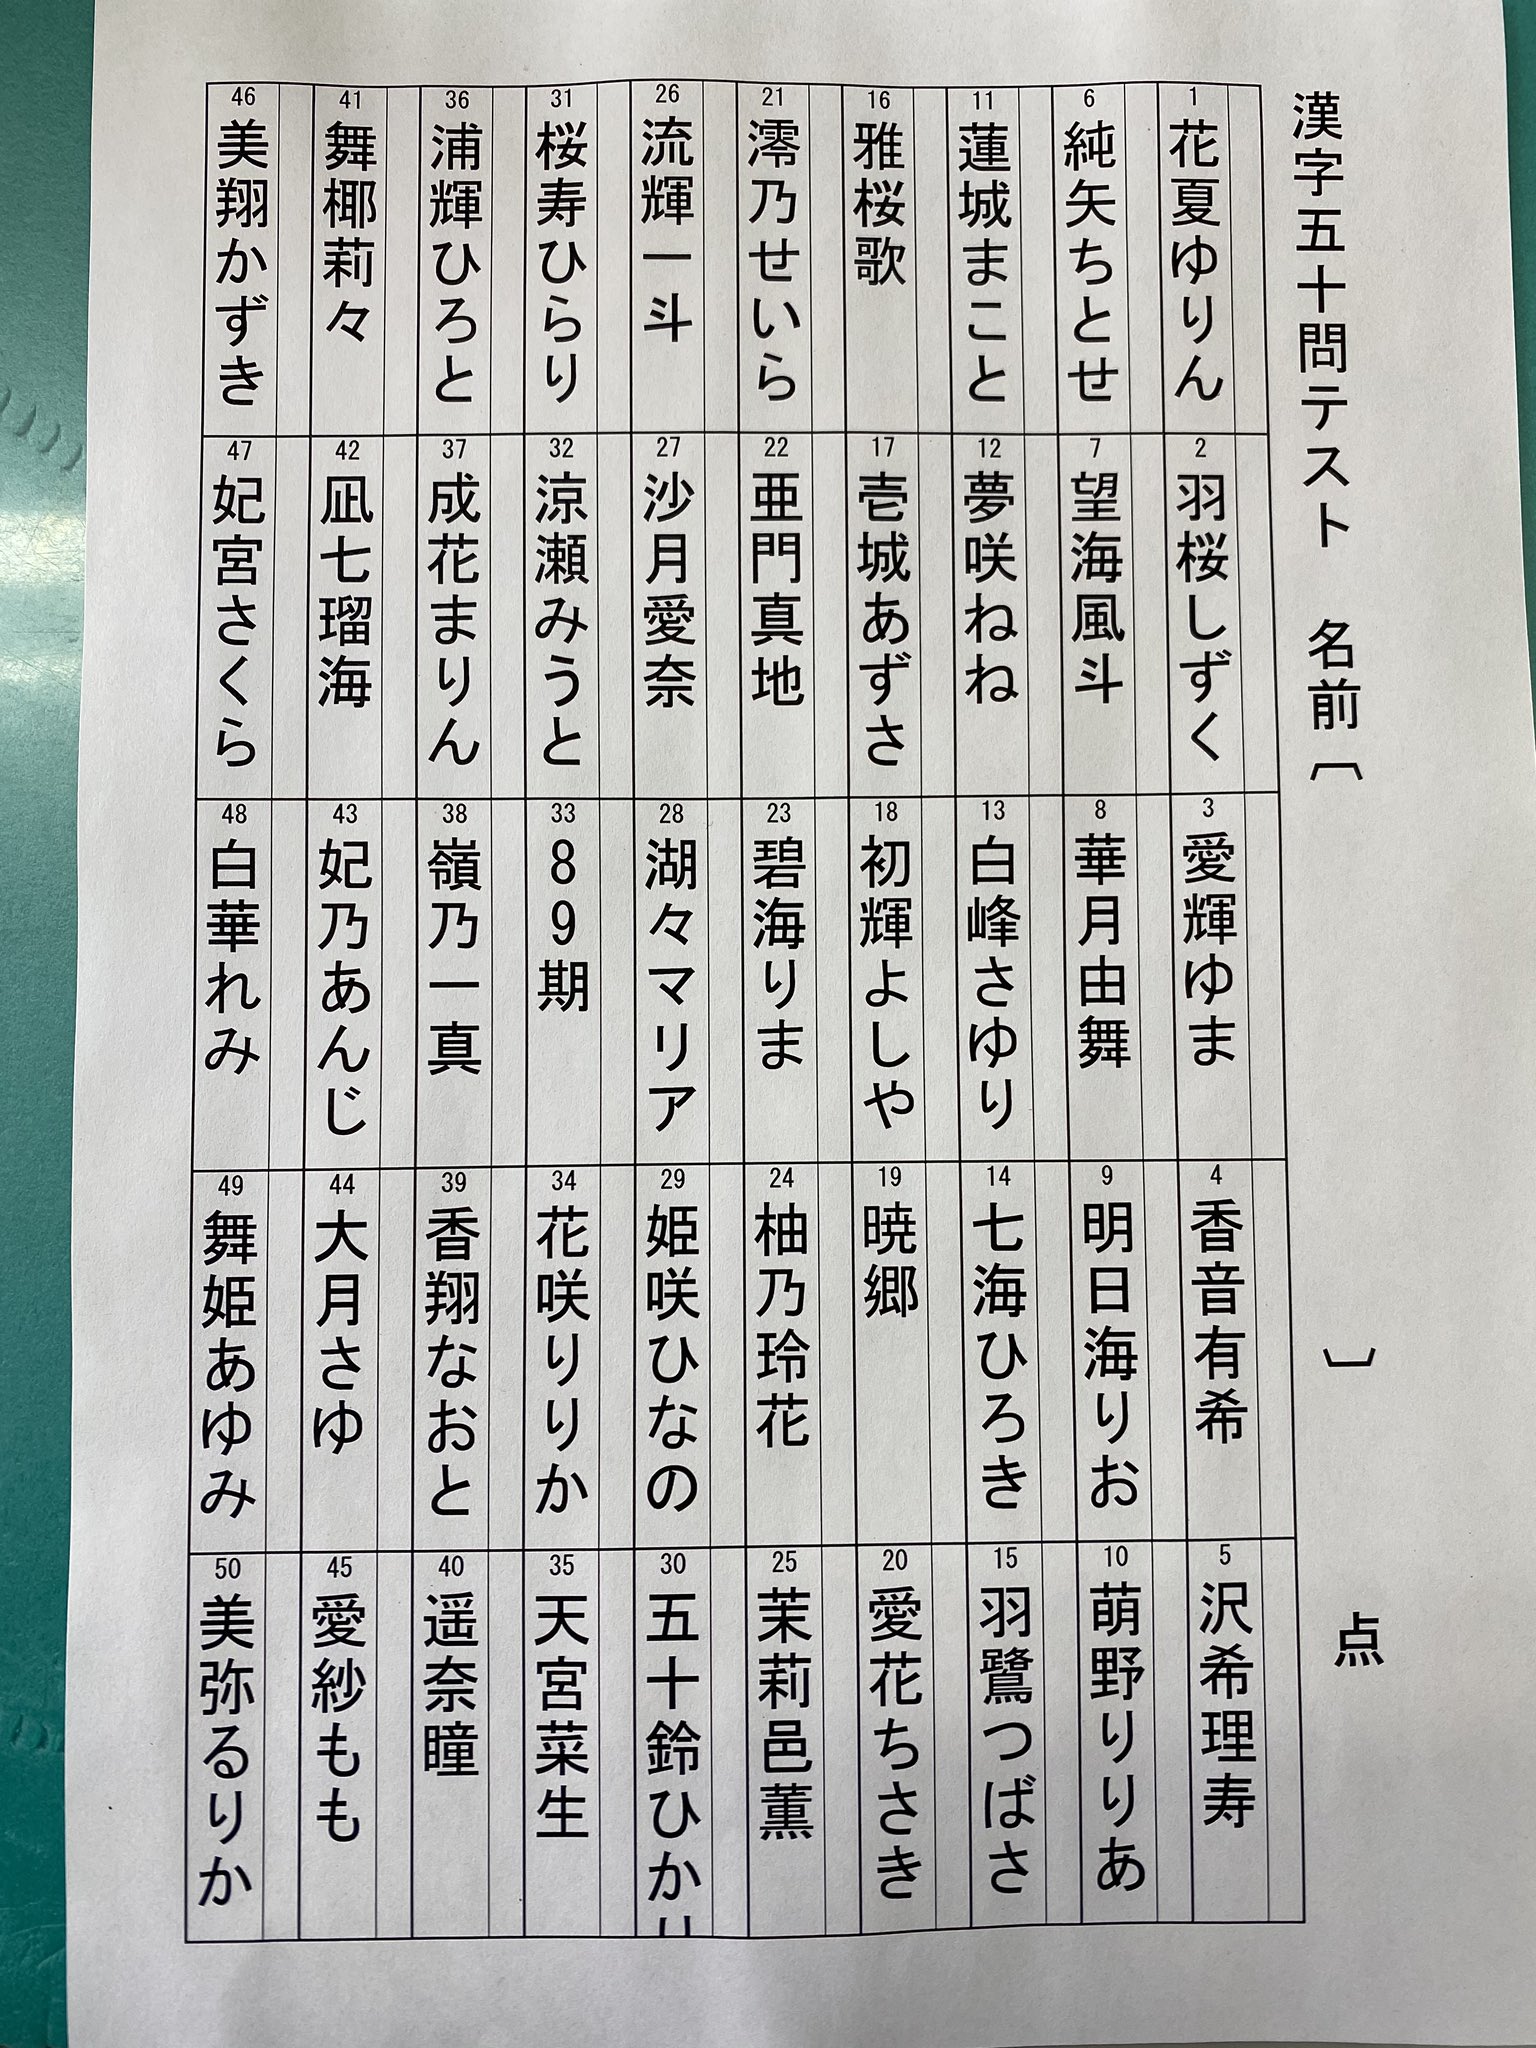 漢字五十問テスト 名前〔 〕 点
1
花夏ゆりん
2
羽桜しずく
3
愛輝ゆま
4
香音有希
5
沢希理寿
6
純矢ちとせ
7
望海風斗
8
華月由舞
9
明日海りお
10
萌野りりあ
11
蓮城まこと
12
夢咲ねね
13
白峰さゆり
14
七海ひろき
15
羽鷺つばさ
16
雅桜歌
17
壱城あずさ
18
初輝よしや
19
暁郷
20
愛花ちさき
21
澪乃せいら
22
亜門真地
23
碧海りま
24
柚乃玲花
25
茉莉邑薫
26
流輝一斗
27
沙月愛奈
28
湖々マリア
29
姫咲ひなの
30
五十鈴ひかり
31
桜寿ひらり
32
涼瀬みうと
33
89期
34
花咲りりか
35
天宮菜生
36
浦輝ひろと
37
成花まりん
38
嶺乃一真
39
香翔なおと
40
遥奈瞳
41
舞椰莉々
42
凪七瑠海
43
妃乃あんじ
44
大月さゆ
45
愛紗もも
46
美翔かずき
47
妃宮さくら
48
白華れみ
49
舞姫あゆみ
50
美弥るりか